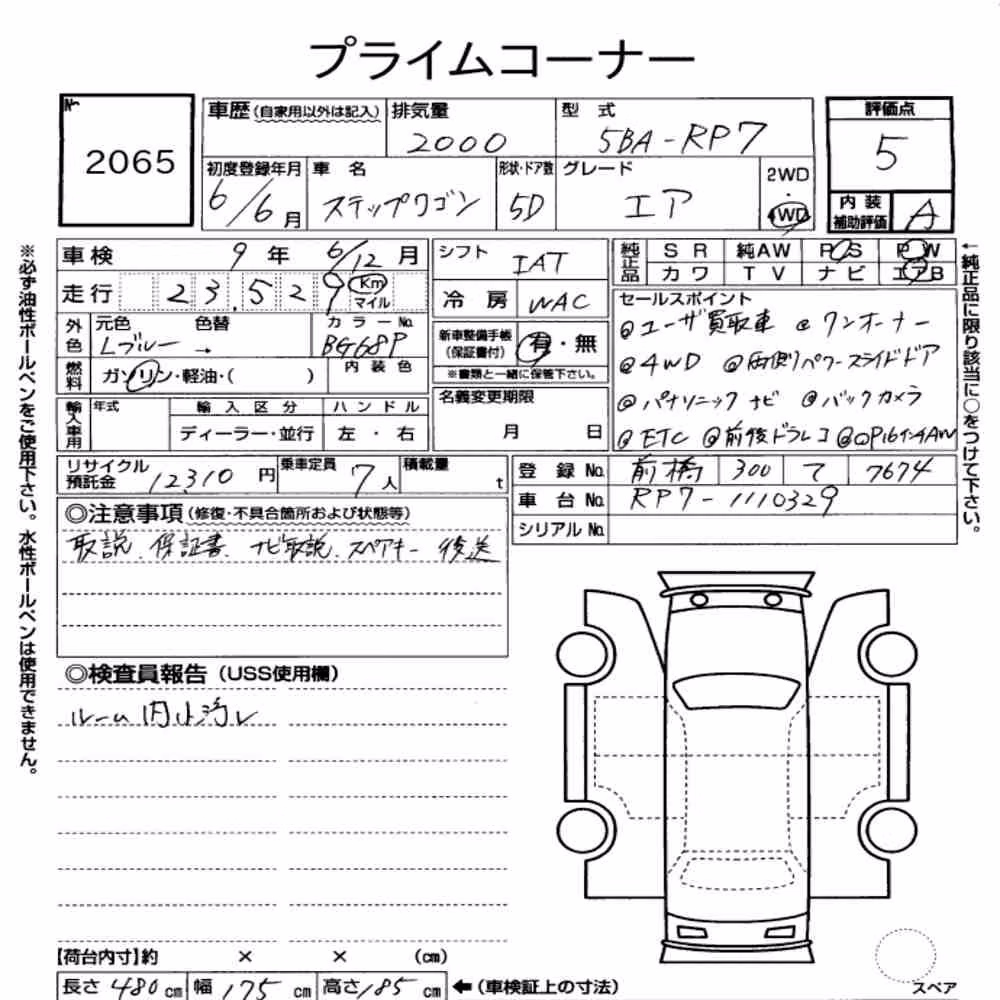 プライムコーナー
№
2065
車歴(自家用以外は記入)
排気量
2000
型式
5BA-RP7
評価点
5
初度登録年月
6/6月
車名
ステップワゴン
形状・ドア数
5D
グレード
エア
2WD
・
4WD
内装
補助評価
A
車検
9年 6/12月
走行
23,529 Km
マイル
外色
元色 色替
Lブルー →
カラーNo.
BG68P
燃料
ガソリン・軽油・( )
内装色
輸入車用
年式
輸入区分
ディーラー・並行
ハンドル
左・右
シフト
IAT
冷房
WAC
新車整備手帳
(保証書付)
有・無
※書類と一緒に保管下さい。
名義変更期限
月 日
純正品
SR 純AW PS PW
カワ TV ナビ エアB
セールスポイント
@ユーザ買取車 @ワンオーナー
@4WD @両側パワースライドドア
@パナソニックナビ @バックカメラ
@ETC @前後ドラレコ @OP16インチAW
リサイクル
預託金
12310円
乗車定員
7人
積載量
t
登録No.
前橋 300 て 7674
車台No.
RP7-1110329
シリアルNo.
◎注意事項(修復・不具合箇所および状態等)
取説、保証書、ナビ取説、スペアキー後送
◎検査員報告(USS使用欄)
ルーム内小汚レ
【荷台内寸】約 × × (cm)
長さ480cm 幅175cm 高さ185cm ←(車検証上の寸法)
スペア
※必ず油性ボールペンをご使用下さい。水性ボールペンは使用できません。
←純正品に限り該当に○をつけて下さい。